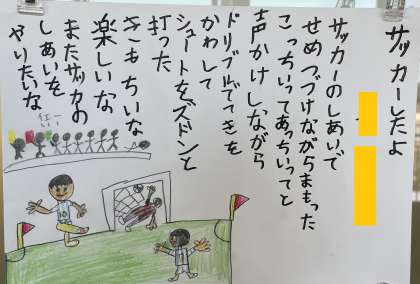 サッカーしたよ
サッカーのしあいで
せめつづけながらまもった
こっちいってあっちいってと
声かけしながら
ドリブルでてきを
かわして
シュートをズドンと
打った
きもちいな
楽しいな
またサッカーの
しあいを
やりたいな